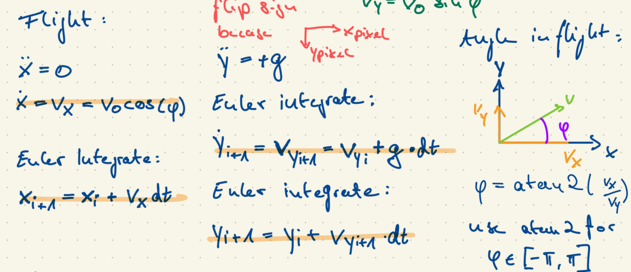 Flight:
ẍ = 0
ẋ = Vx = V0 cos(φ)
Euler Integrate:
x_{i+1} = x_i + Vx dt
flip sign
because
x pixel
y pixel
ÿ = +g
Euler integrate:
ẏ_{i+1} = V_{y_{i+1}} = V_{y_i} + g · dt
Euler integrate:
y_{i+1} = y_i + V_{y_{i+1}} · dt
Vy = V0 sin φ
Angle in flight:
Y
Vy
v
φ
Vx
x
φ = atan2(Vx/Vy)
use atan2 for
φ ∈ [-π, π]